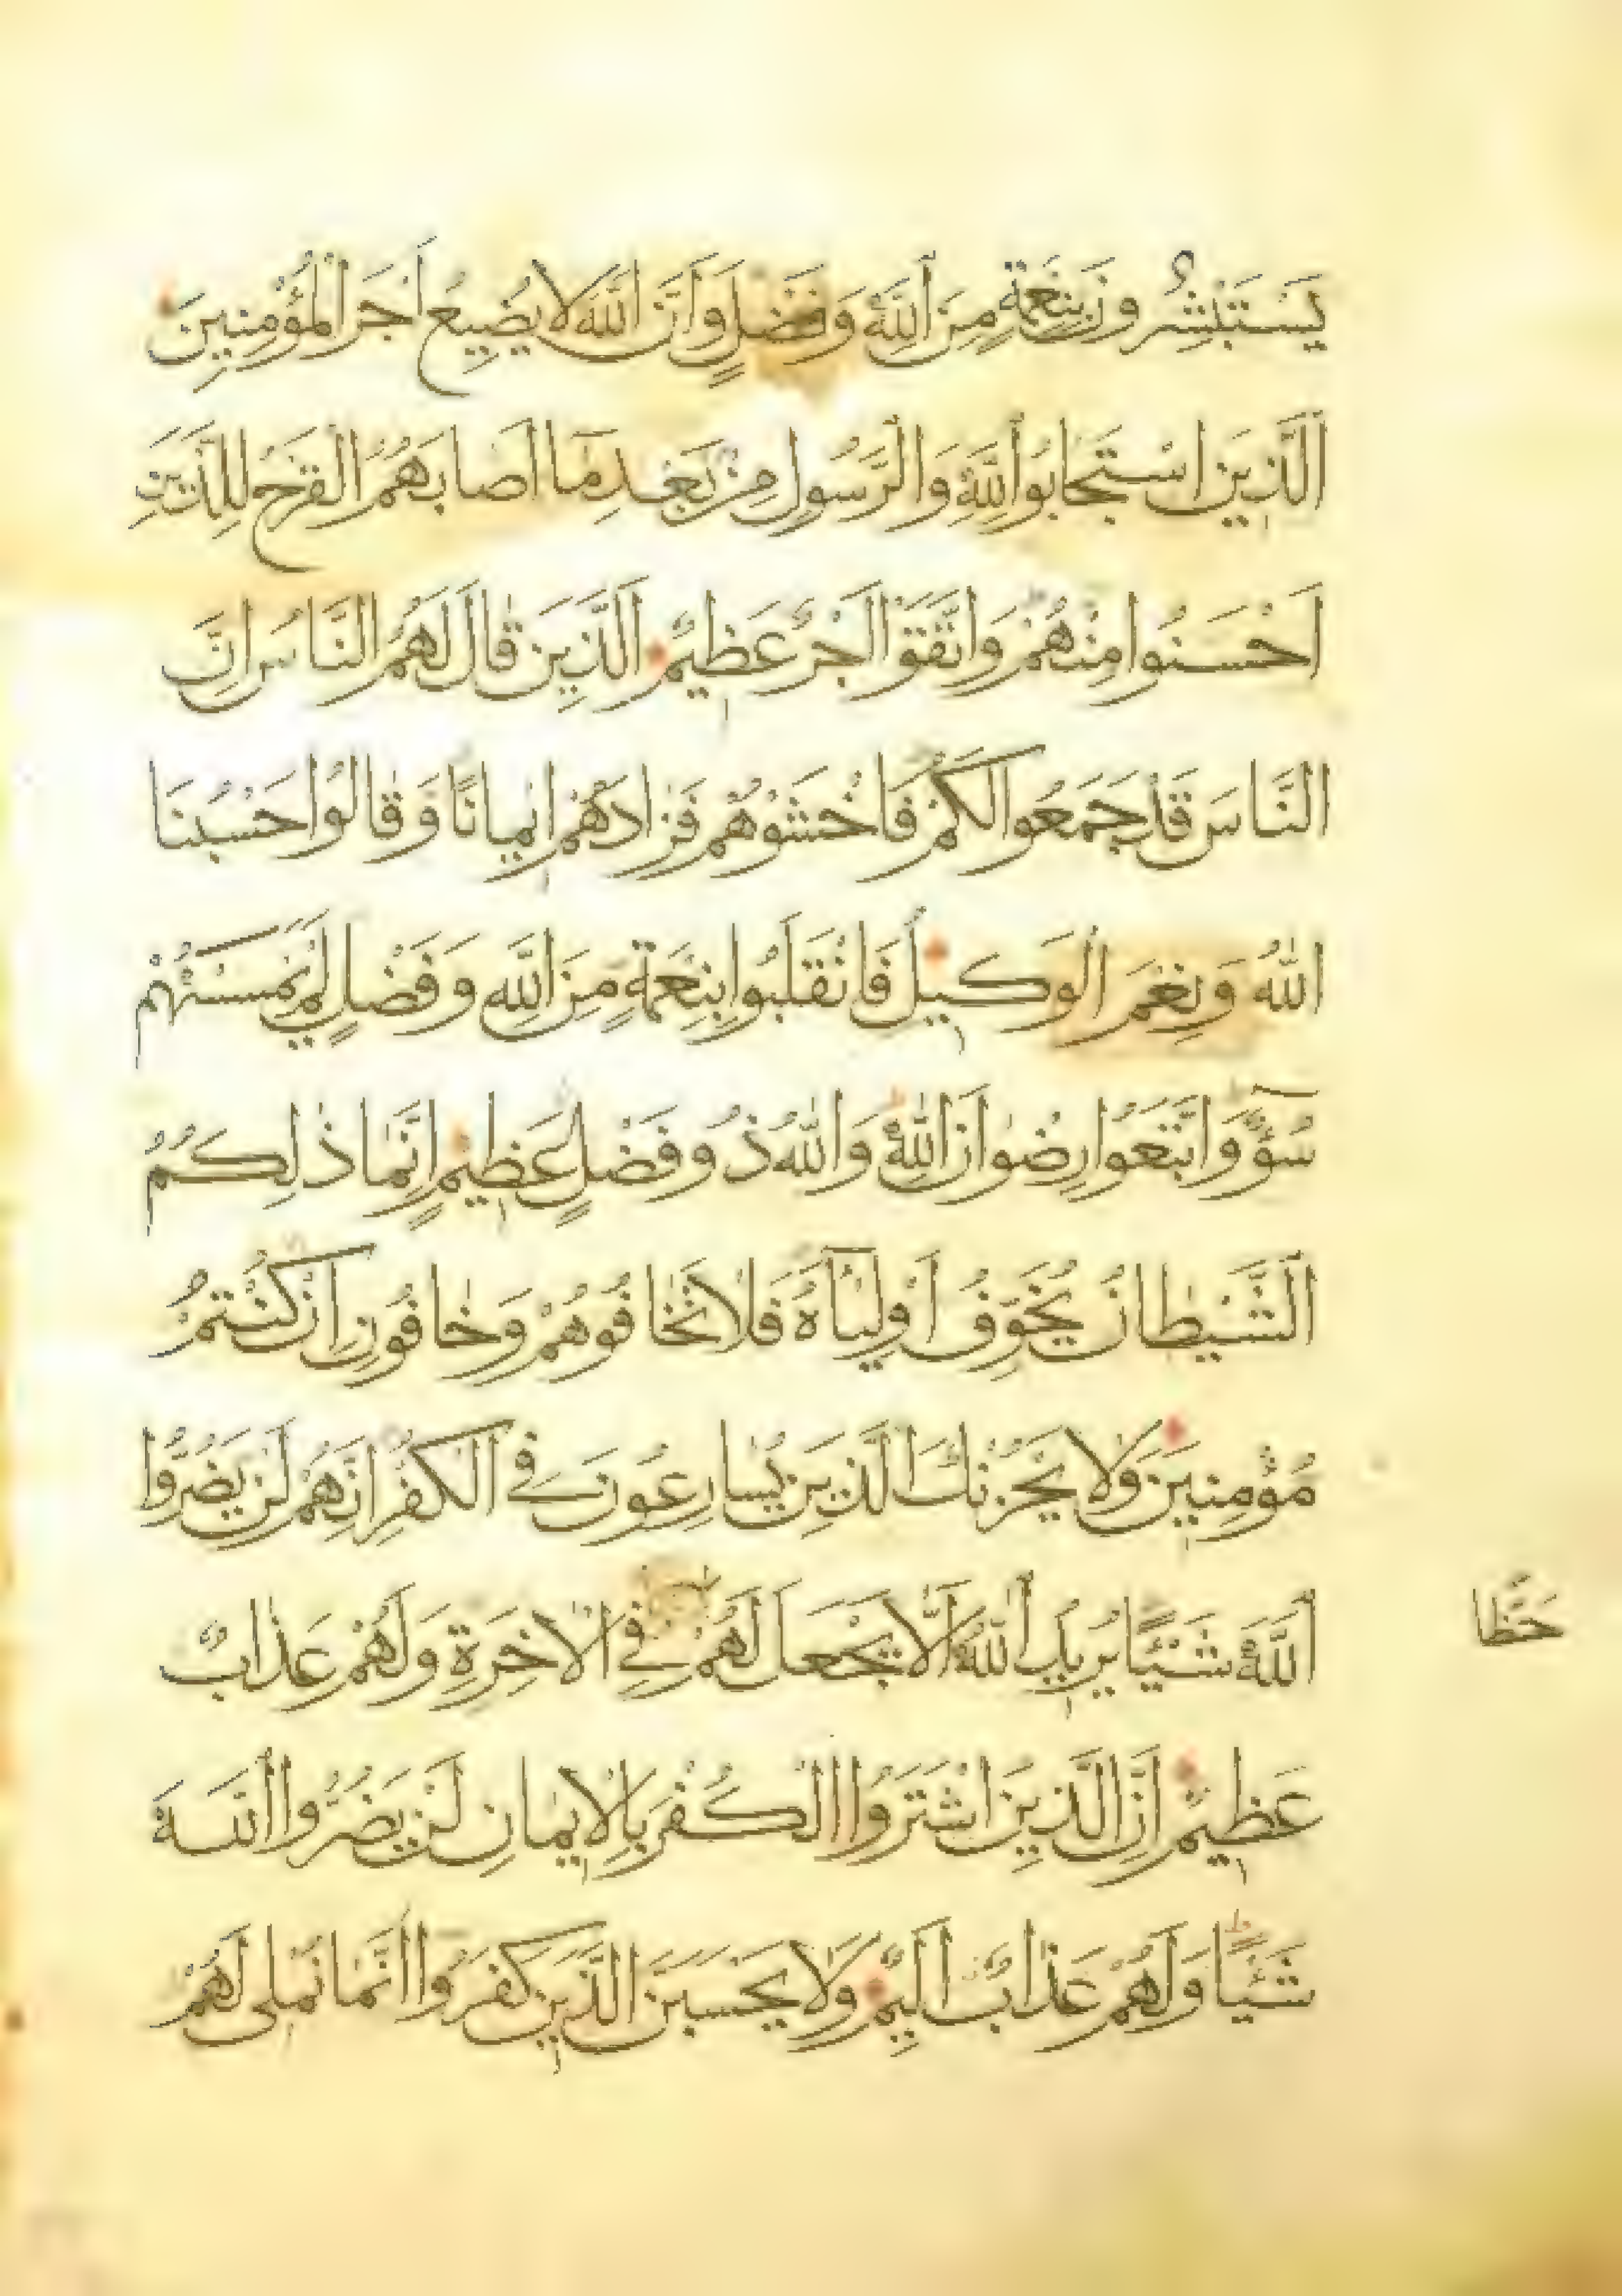 يَسْتَبْشِرُونَ بِنِعْمَةٍ مِنَ اللَّهِ وَفَضْلٍ وَأَنَّ اللَّهَ لَا يُضِيعُ أَجْرَ الْمُؤْمِنِينَ
اَلَّذِينَ اسْتَجَابُوا لِلَّهِ وَالرَّسُولِ مِنْ بَعْدِ مَا أَصَابَهُمُ الْقَرْحُ لِلَّذِينَ
اَحْسَنُوا مِنْهُمْ وَاتَّقَوْا اَجْرٌ عَظِيمٌ اَلَّذِينَ قَالَ لَهُمُ النَّاسُ اِنَّ
النَّاسَ قَدْ جَمَعُوا لَكُمْ فَاخْشَوْهُمْ فَزَادَهُمْ اِيمَانًا وَقَالُوا حَسْبُنَا
اللّٰهُ وَنِعْمَ الْوَكِيلُ فَانْقَلَبُوا بِنِعْمَةٍ مِنَ اللَّهِ وَفَضْلٍ لَمْ يَمْسَسْهُمْ
سُوۤءٌ وَاتَّبَعُوا رِضْوَانَ اللّٰهِ وَاللّٰهُ ذُو فَضْلٍ عَظِيمٍ اِنَّمَا ذٰلِكُمُ
الشَّيْطَانُ يُخَوِّفُ اَوْلِيَاۤءَهُ فَلَا تَخَافُوهُمْ وَخَافُونِ اِنْ كُنْتُمْ
مُؤْمِنِينَ وَلَا يَحْزُنْكَ الَّذِينَ يُسَارِعُونَ فِي الْكُفْرِ اِنَّهُمْ لَنْ يَضُرُّوا
اللَّهَ شَيْئًا يُرِيدُ اللّٰهُ اَلَّا يَجْعَلَ لَهُمْ فِي الْاٰخِرَةِ وَلَهُمْ عَذَابٌ
حَظًّا
عَظِيمٌ اِنَّ الَّذِينَ اشْتَرَوُا الْكُفْرَ بِالْاِيمَانِ لَنْ يَضُرُّوا اللَّهَ
شَيْئًا وَلَهُمْ عَذَابٌ اَلِيمٌ وَلَا يَحْسَبَنَّ الَّذِينَ كَفَرُوا اَنَّمَا نُمْلِي لَهُمْ